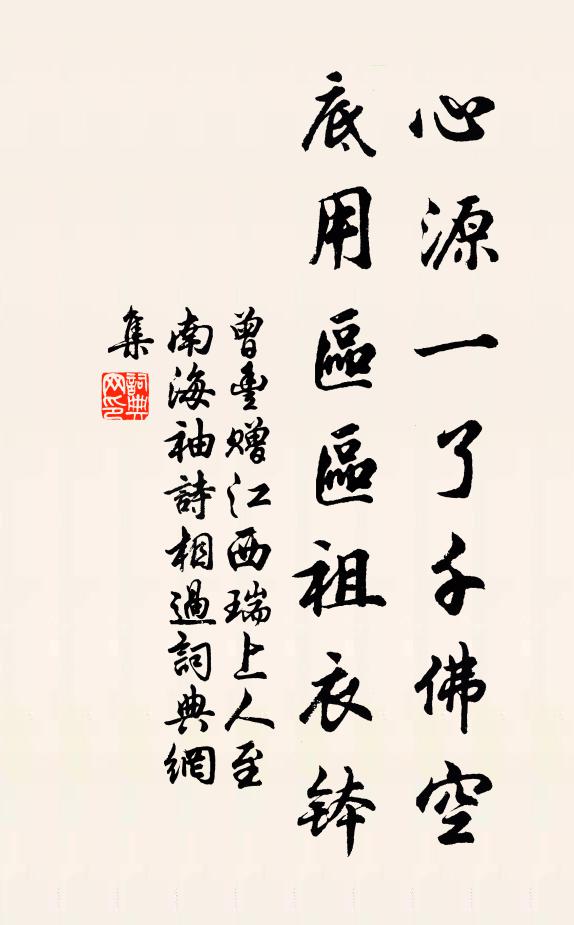 心源一了千佛空
底用區區祖衣鉢
曾豊贈江西瑞上人至
南海袖詩相過詞典網
集
詞典
网印